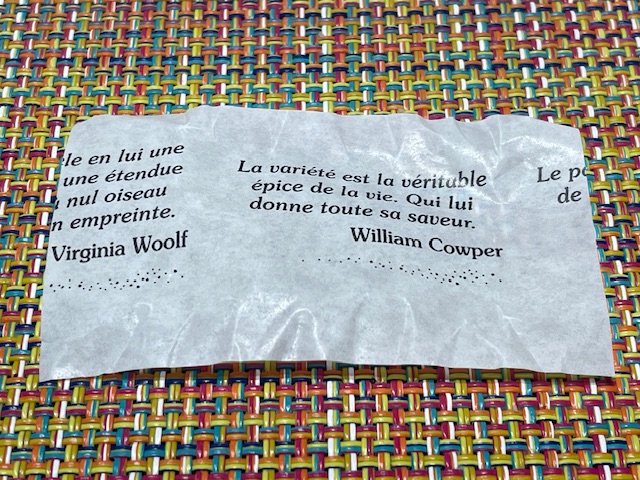 le en lui une
une étendue
nul oiseau
empreinte.
Virginia Woolf
La variété est la véritable
épice de la vie. Qui lui
donne toute sa saveur.
William Cowper
Le
de